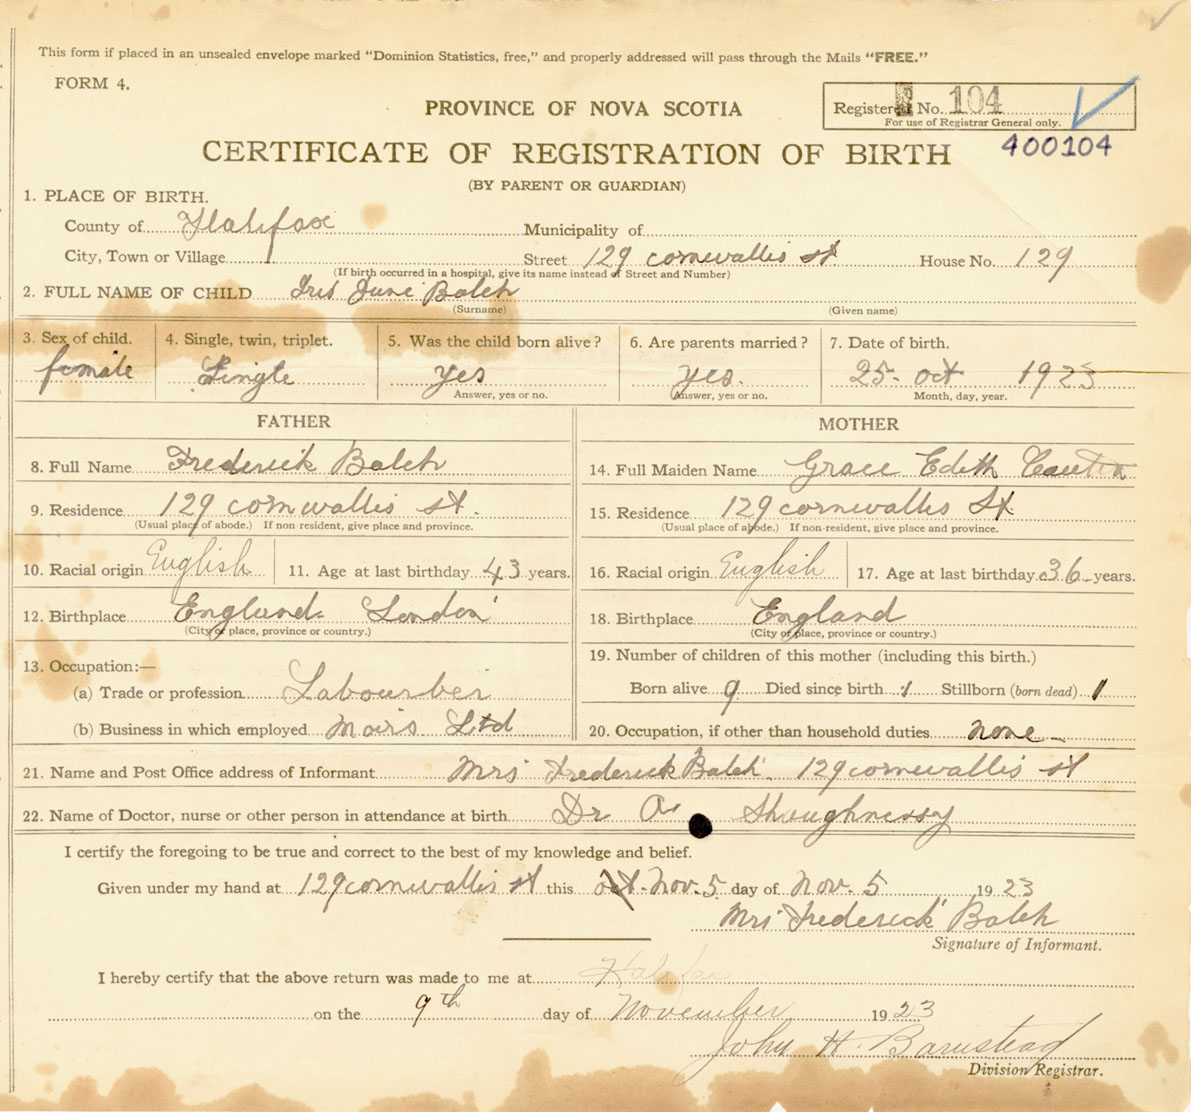 This form if placed in an unsealed envelope marked “Dominion Statistics, free,” and properly addressed will pass through the Mails “FREE.”
FORM 4.
Registered No. 104
For use of Registrar General only.
PROVINCE OF NOVA SCOTIA
400104
CERTIFICATE OF REGISTRATION OF BIRTH
(BY PARENT OR GUARDIAN)
1. PLACE OF BIRTH.
County of Halifax Municipality of
City, Town or Village Street 129 cornwallis st House No. 129
(If birth occurred in a hospital, give its name instead of Street and Number)
2. FULL NAME OF CHILD Iris June Balch
(Surname) (Given name)
3. Sex of child. 4. Single, twin, triplet. 5. Was the child born alive? 6. Are parents married? 7. Date of birth.
female Single yes yes. 25- oct 1923
Answer, yes or no. Answer, yes or no. Month, day, year.
FATHER MOTHER
8. Full Name Frederick Balch 14. Full Maiden Name Grace Edith
9. Residence 129 cornwallis st. 15. Residence 129 cornwallis St
(Usual place of abode.) If non resident, give place and province. (Usual place of abode.) If non-resident, give place and province.
10. Racial origin English 11. Age at last birthday 43 years. 16. Racial origin English 17. Age at last birthday 36 years.
12. Birthplace England London 18. Birthplace England
(City or place, province or country.) (City or place, province or country.)
13. Occupation:— 19. Number of children of this mother (including this birth.)
(a) Trade or profession Labourber Born alive 9 Died since birth 1 Stillborn (born dead) 1
(b) Business in which employed Moirs Ltd 20. Occupation, if other than household duties none
21. Name and Post Office address of Informant Mrs Frederick Balch. 129 cornwallis st
22. Name of Doctor, nurse or other person in attendance at birth Dr O Shaughnessy
I certify the foregoing to be true and correct to the best of my knowledge and belief.
Given under my hand at 129 cornwallis st this oct. Nov. 5 day of Nov. 5 1923
Mrs Frederick Balch
Signature of Informant.
I hereby certify that the above return was made to me at Halifax
on the 9th day of November 1923
John H. Barnstead
Division Registrar.